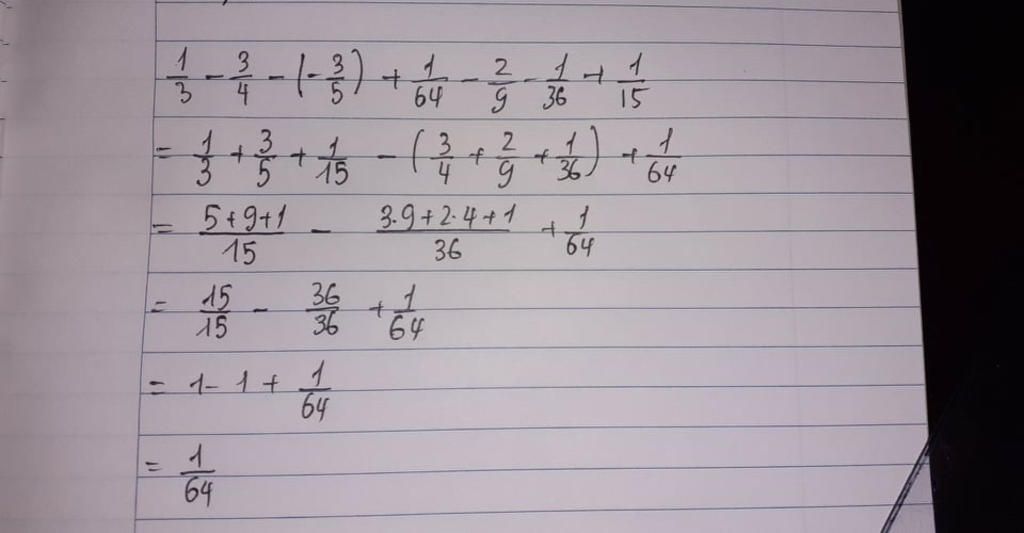 1/3 - 3/4 - (-3/5) + 1/64 - 2/9 - 1/36 + 1/15
= 1/3 + 3/5 + 1/15 - (3/4 + 2/9 + 1/36) + 1/64
= (5+9+1)/15 - (3.9+2.4+1)/36 + 1/64
= 15/15 - 36/36 + 1/64
= 1 - 1 + 1/64
= 1/64